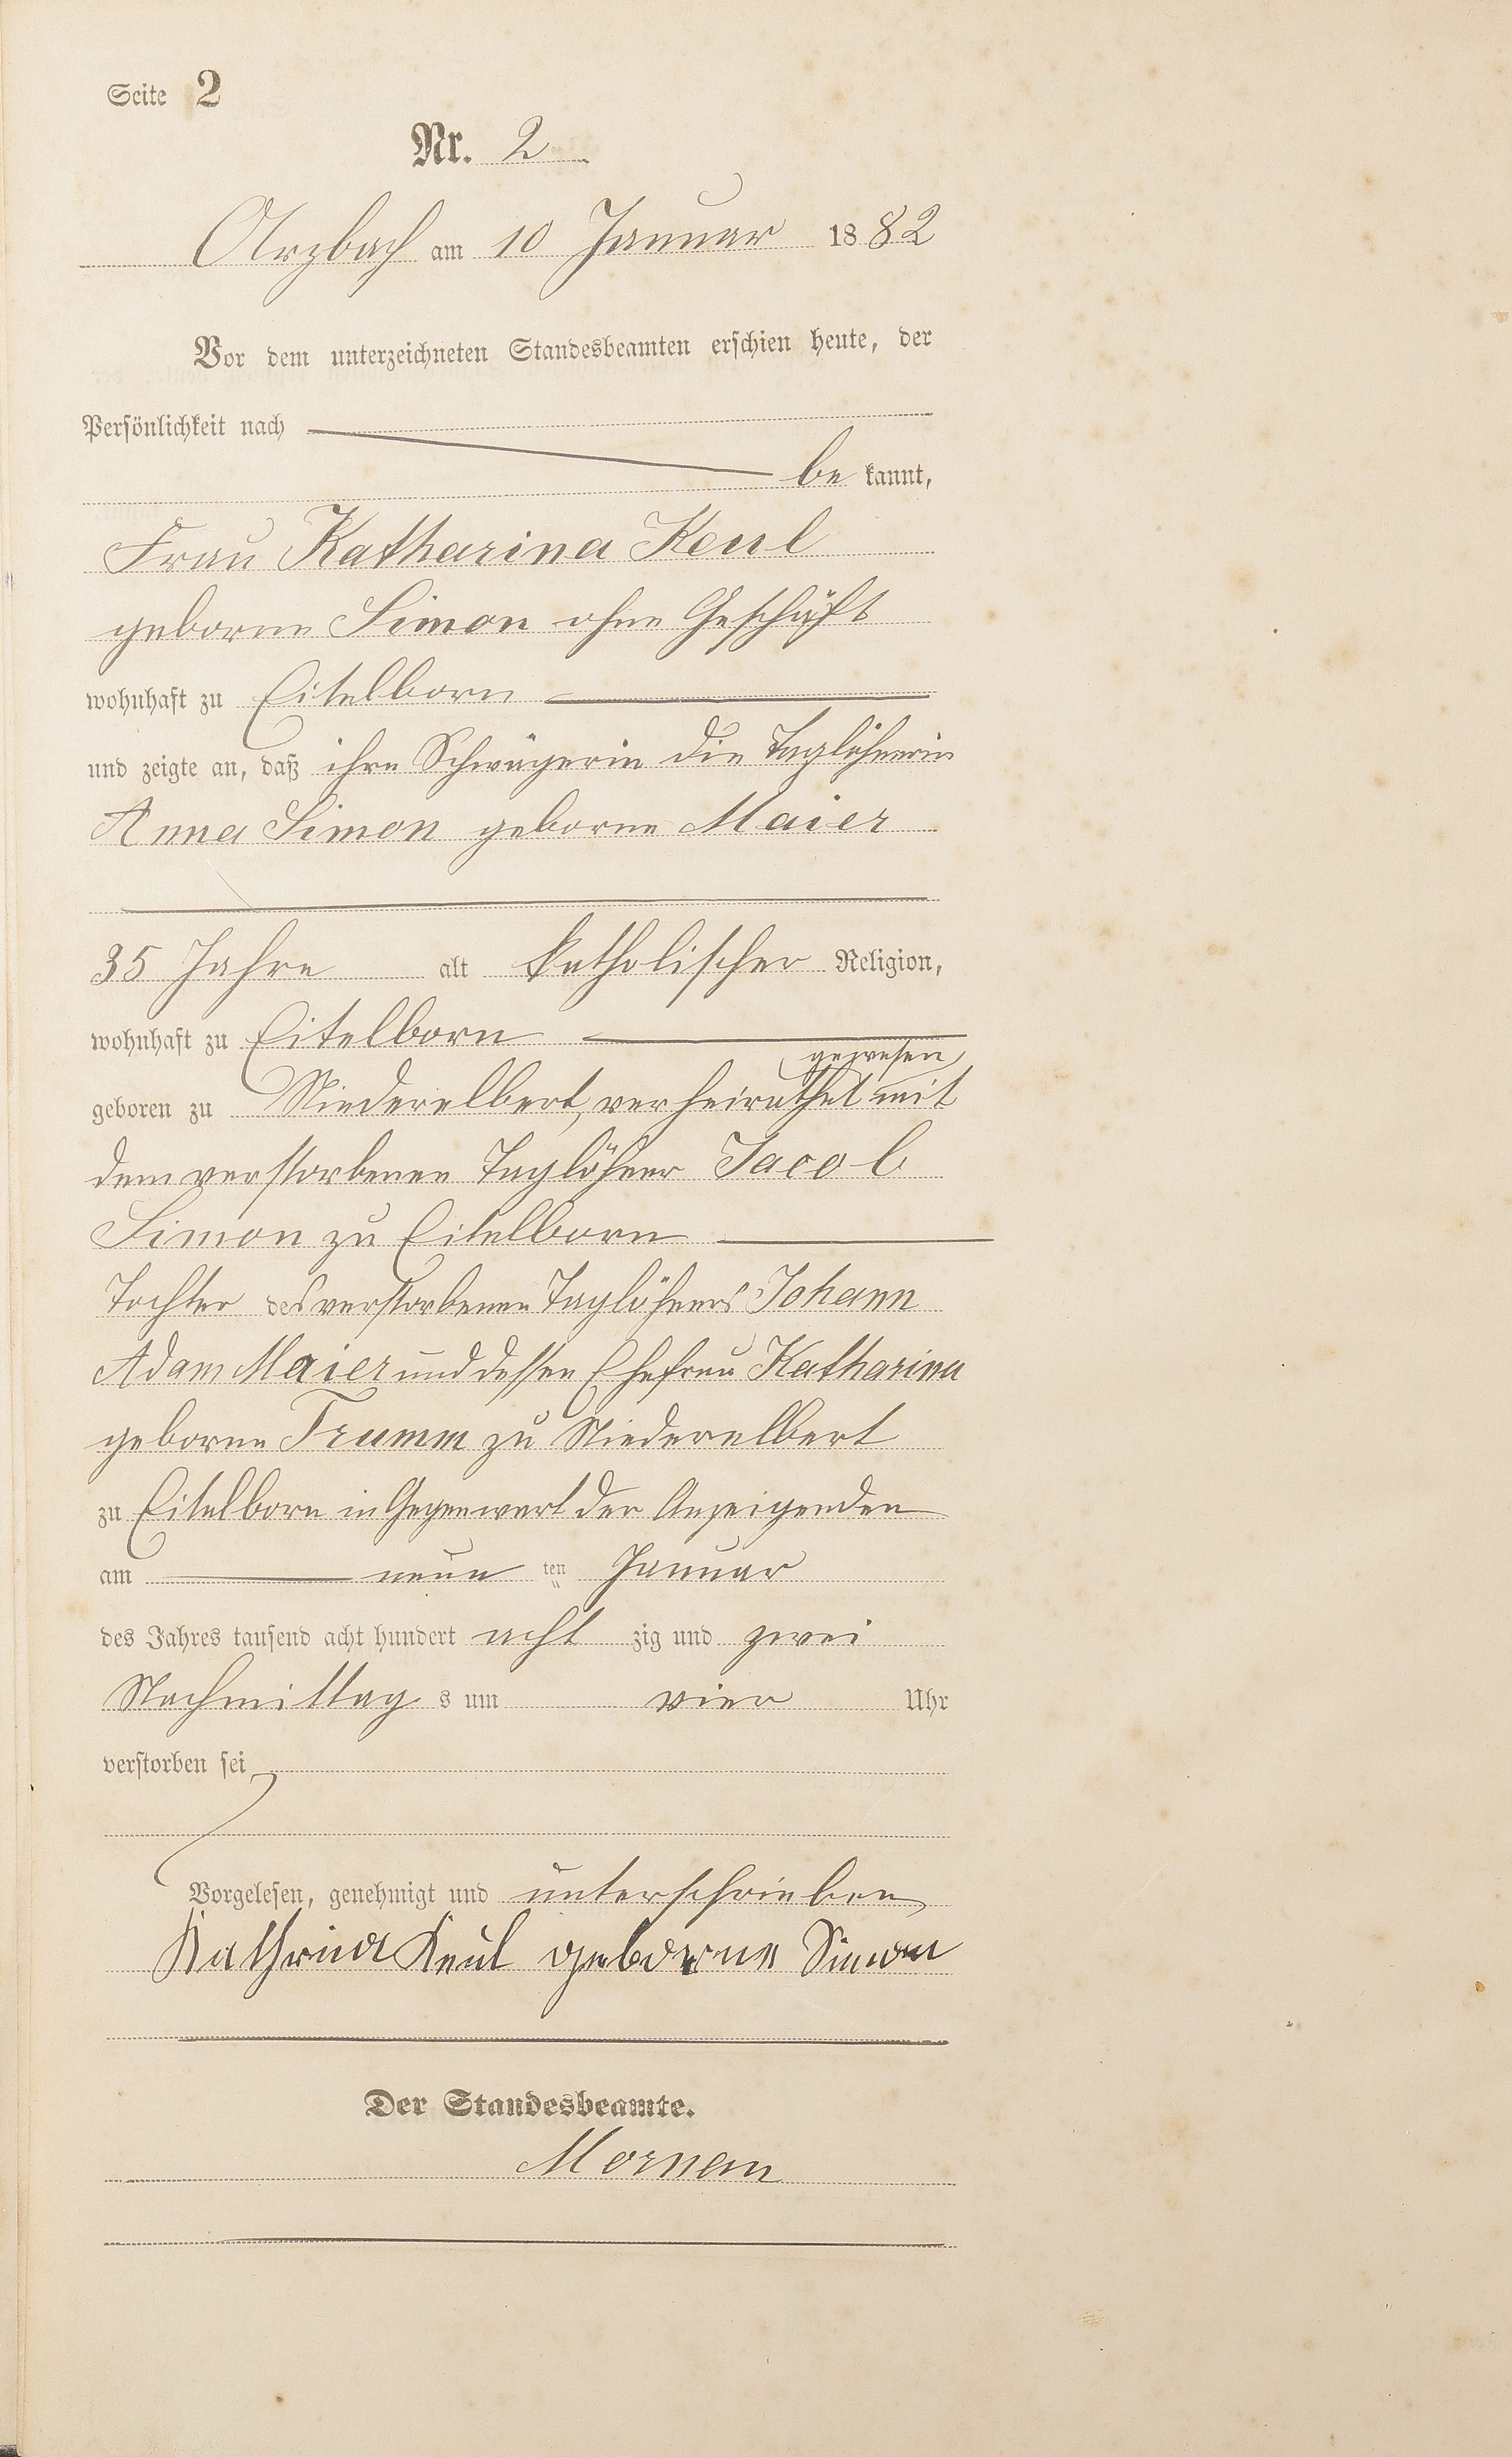 Seite 2
Nr. 2
Arzbach am 10 Januar 1882
Vor dem unterzeichneten Standesbeamten erschien heute, der
Persönlichkeit nach
be kannt,
Frau Katharina Keul
geborne Simon ohne Geschäft
wohnhaft zu Eitelborn
und zeigte an, daß ihre Schwägerin die Taglöhnerin
Anna Simon geborne Maier
35 Jahre alt katholischer Religion,
wohnhaft zu Eitelborn
gewesen
geboren zu Niederelbert, verheirathet mit
dem verstorbenen Taglöhner Jacob
Simon zu Eitelborn
Tochter des verstorbenen Taglöhners Johann
Adam Maier und dessen Ehefrau Katharina
geborne Trumm zu Niederelbert
zu Eitelborn in Gegenwart der Anzeigenden
am neun ten Januar
des Jahres tausend acht hundert acht zig und zwei
Nachmittag s um vier Uhr
verstorben sei
Vorgelesen, genehmigt und unterschrieben
Kathrina Keul geborne Simon
Der Standesbeamte.